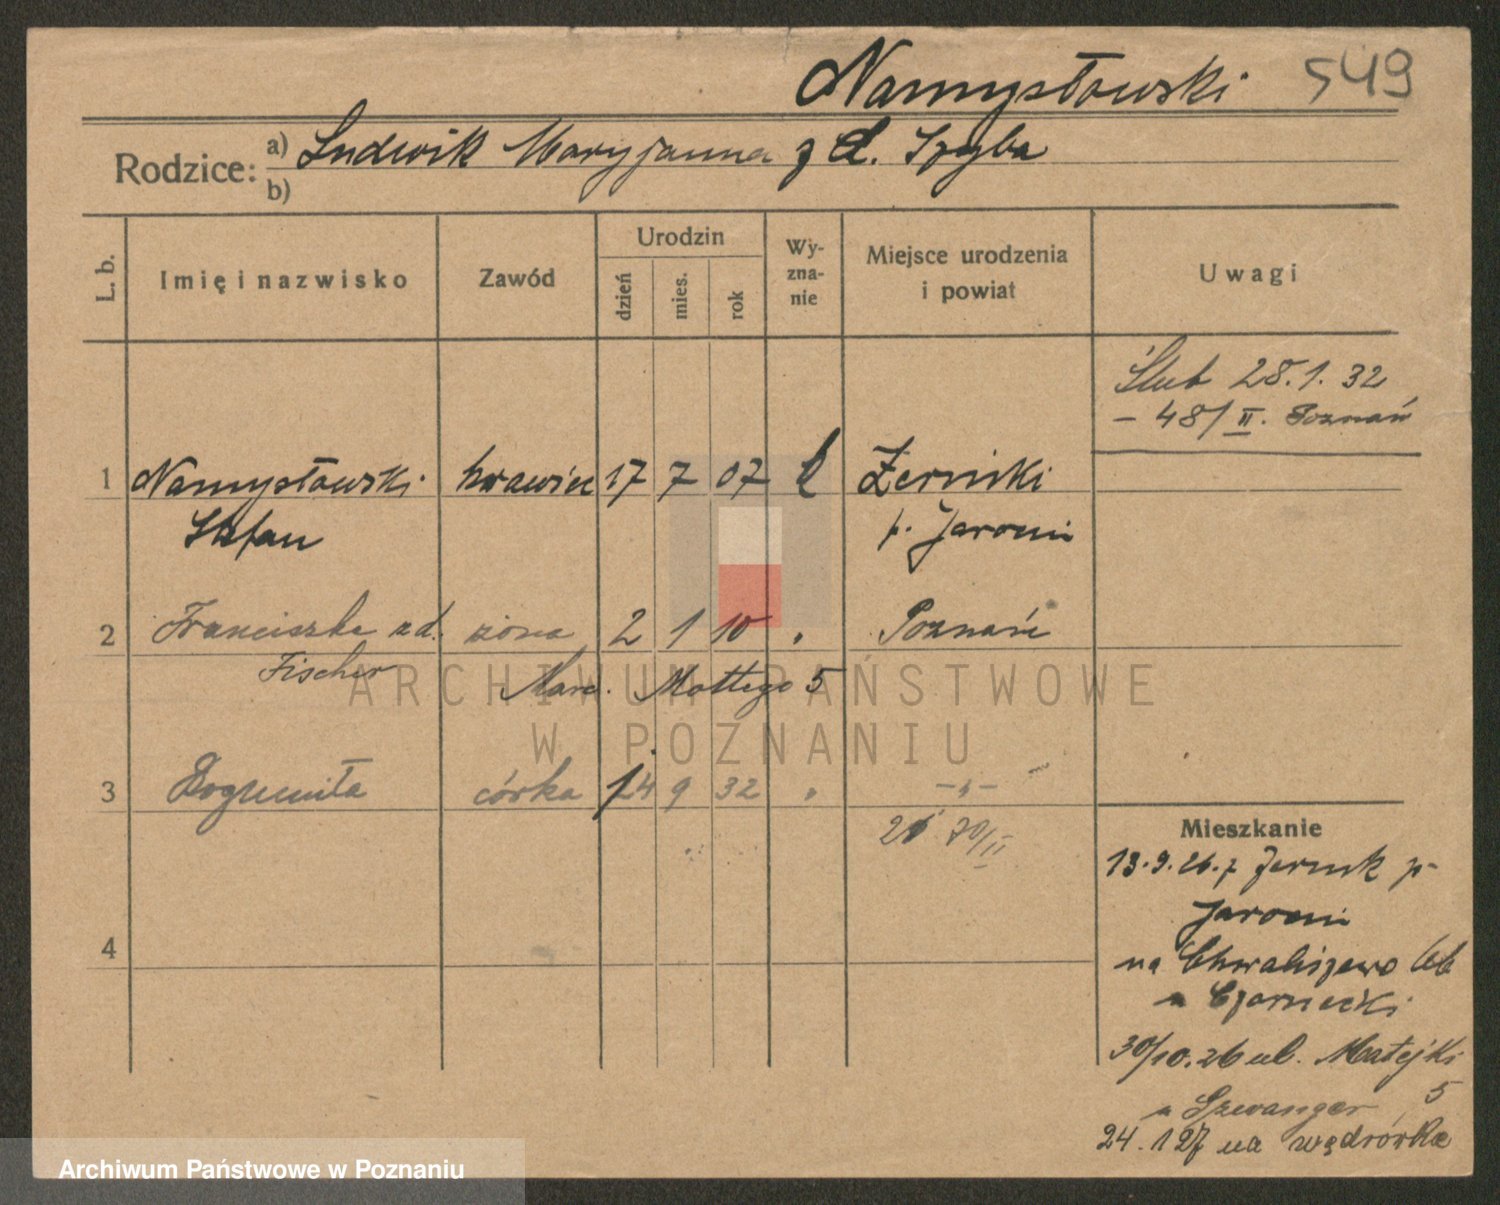 Namysłowski 549
Rodzice: a) Ludwik Maryjanna z d. Szyba
b)
L. b. Imię i nazwisko Zawód Urodzin dzień mies. rok Wy-zna-nie Miejsce urodzenia i powiat Uwagi
Ślub 28.1.32
- 48/II. Poznań
1 Namysłowski krawiec 17 7 07 Żerniki
Stefan p. Jarocin
2 Franciszka z d. żona 2 1 10 Poznań
Fischer Marc. Mottego 5
3 Bogumiła córka 14 9 32 -"-
Mieszkanie
13.9.26. z Żernik p.
Jarocin
4
na Chwaliszewo
u Czarnecki
30/10.26 ul. Matejki
5
u Szwanger
24.1 27 na wędrówkę
ARCHIWUM PAŃSTWOWE
W POZNANIU
Archiwum Państwowe w Poznaniu